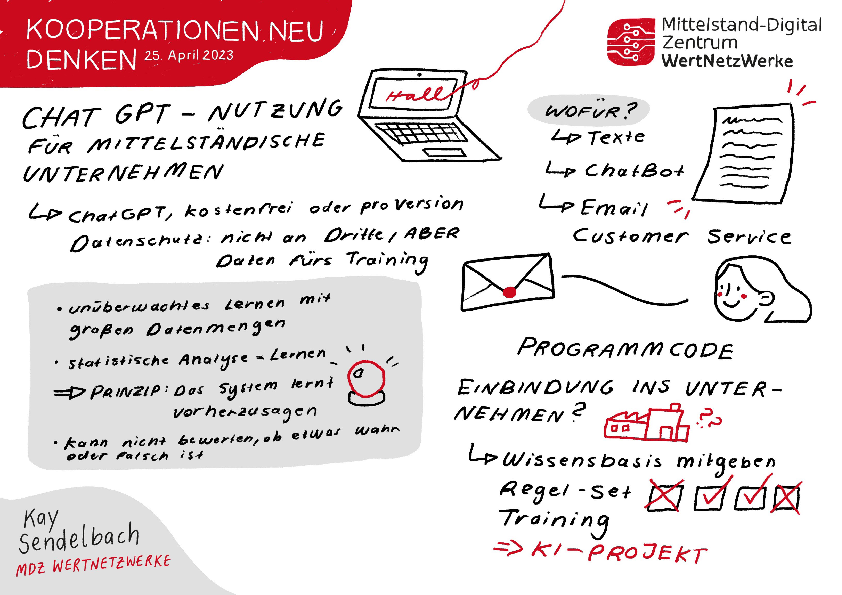 KOOPERATIONEN.NEU
DENKEN 25. April 2023
Mittelstand-Digital
Zentrum
WertNetzWerke
CHAT GPT - NUTZUNG
FÜR MITTELSTÄNDISCHE
UNTERNEHMEN
Hall
ChatGPT, kostenfrei oder pro Version
Datenschutz: nicht an Dritte, ABER
Daten fürs Training
• unüberwachtes Lernen mit
großen Datenmengen
• statistische Analyse - Lernen
⇒ PRINZIP: Das System lernt
vorherzusagen
• kann nicht bewerten, ob etwas wahr
oder falsch ist
Kay
Sendelbach
MDZ WERTNETZWERKE
WOFÜR?
↳ Texte
↳ ChatBot
↳ Email
Customer Service
PROGRAMMCODE
EINBINDUNG INS UNTER-
NEHMEN?
??
↳ Wissensbasis mitgeben
Regel-Set
Training
⇒ KI-PROJEKT